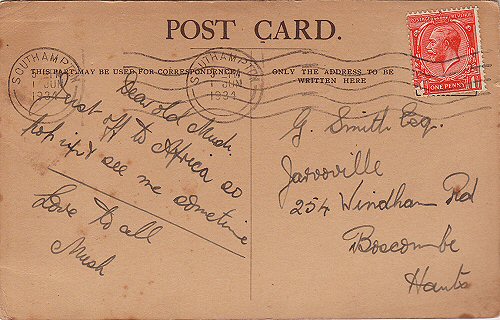 POST CARD.
THIS PART MAY BE USED FOR CORRESPONDENCE
ONLY THE ADDRESS TO BE
WRITTEN HERE
SOUTHAMPTON
1 JUN
1934
SOUTHAMPTON
1 JUN
1934
ONE PENNY
Dear old Mush.
off to Africa so
see me sometime
Love to all
Mush
G. Smith Esq.
Jarooville
254 Windham Rd
Boscombe
Hants